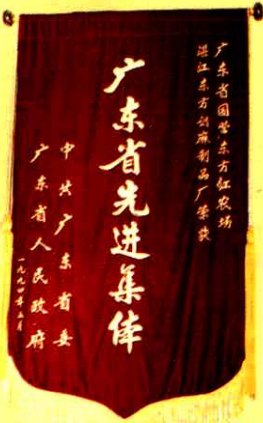 广东省国营东方红农场
湛江东方剑麻制品厂荣获
广东省先进集体
中共广东省委
广东省人民政府
一九九四年五月